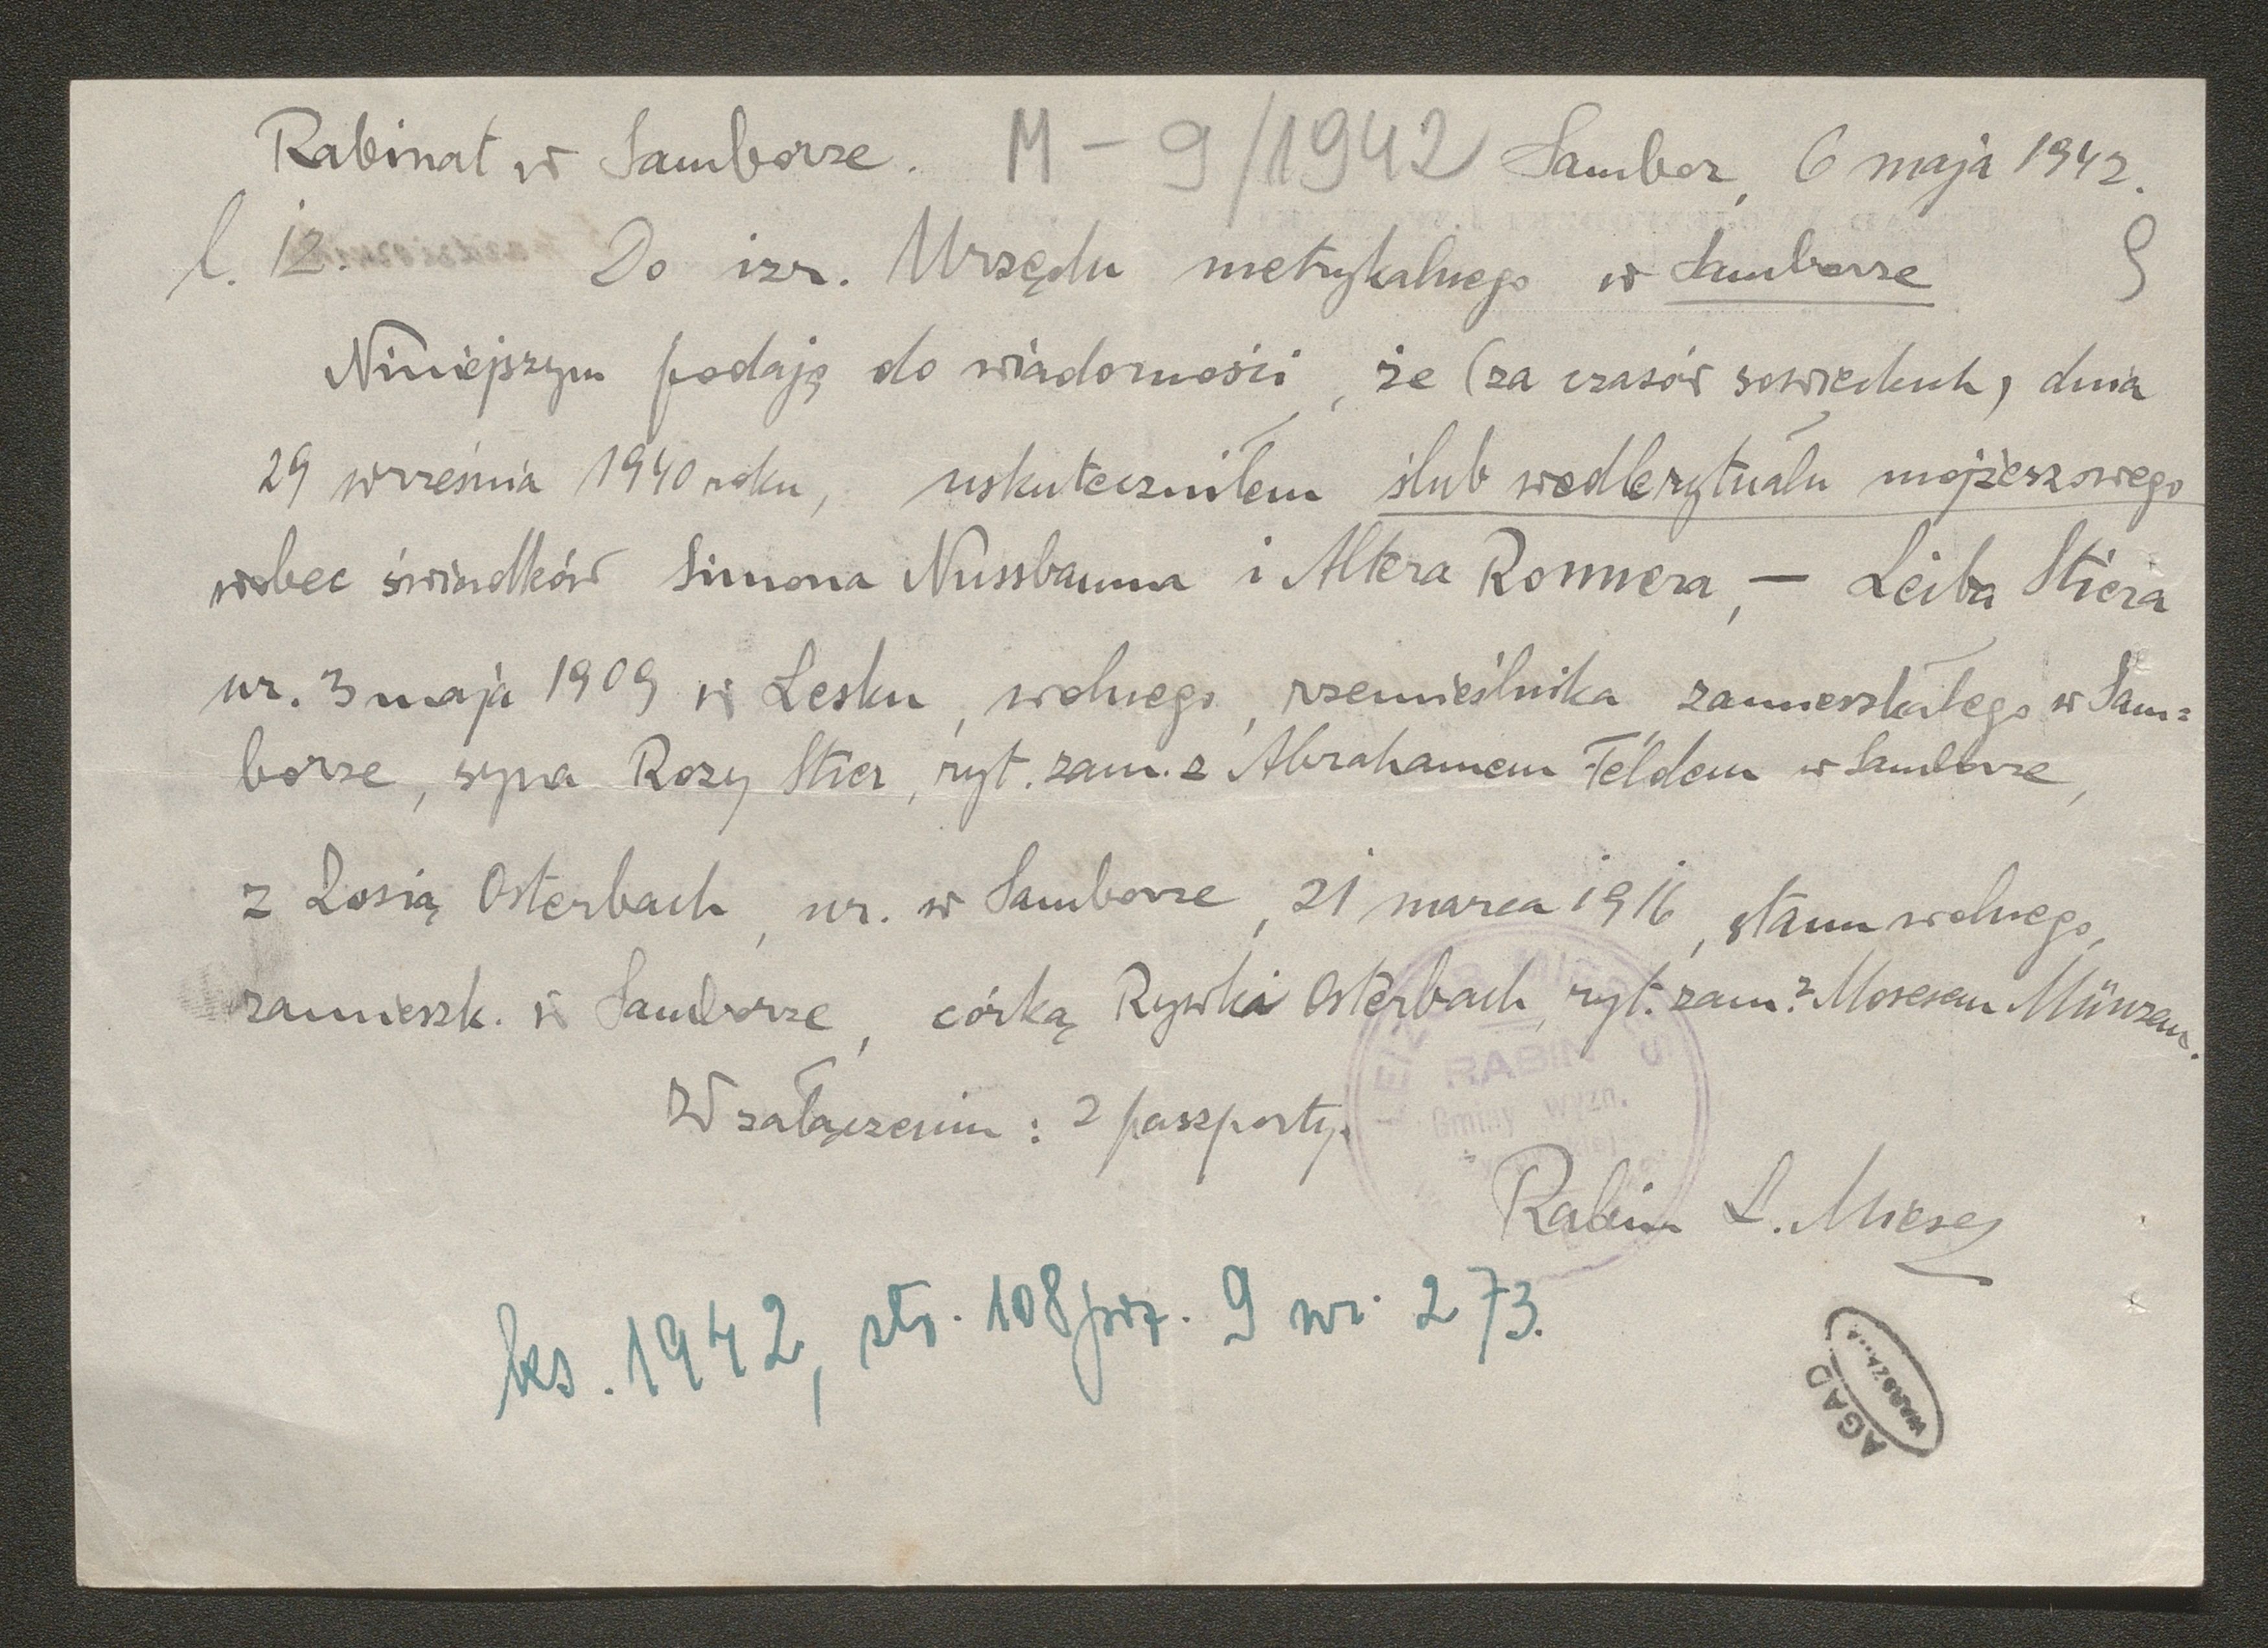 Rabinat w Samborze. M - 9/1942 Sambor, 6 maja 1942.
l. 12. Do izr. Urzędu metrykalnego w Samborze 9
Niniejszym podaję do wiadomości, że (za czasów sowieckich) dnia
29 września 1940 roku, uskuteczniłem ślub wedle rytuału mojżeszowego
wobec świadków Simona Nussbauma i Altera Ronnera, — Leiba Stiera
ur. 3 maja 1909 w Lesku, wolnego, rzemieślnika zamieszkałego w Sam=
borze, syna Rozy Stier, ryt. zam. z Abrahamem Feldem w Samborze,
z Losią Osterbach, ur. w Samborze, 21 marca 1916, stanu wolnego,
zamieszk. w Samborze, córką Rywki Osterbach ryt. zam. z Mosesem Münzem.
W załączeniu: 2 paszporty.
RABIN
Gminy wyzn.
Rabin L. Mieses
ks. 1942, str. 108 poz. 9 nr. 273.
AGAD